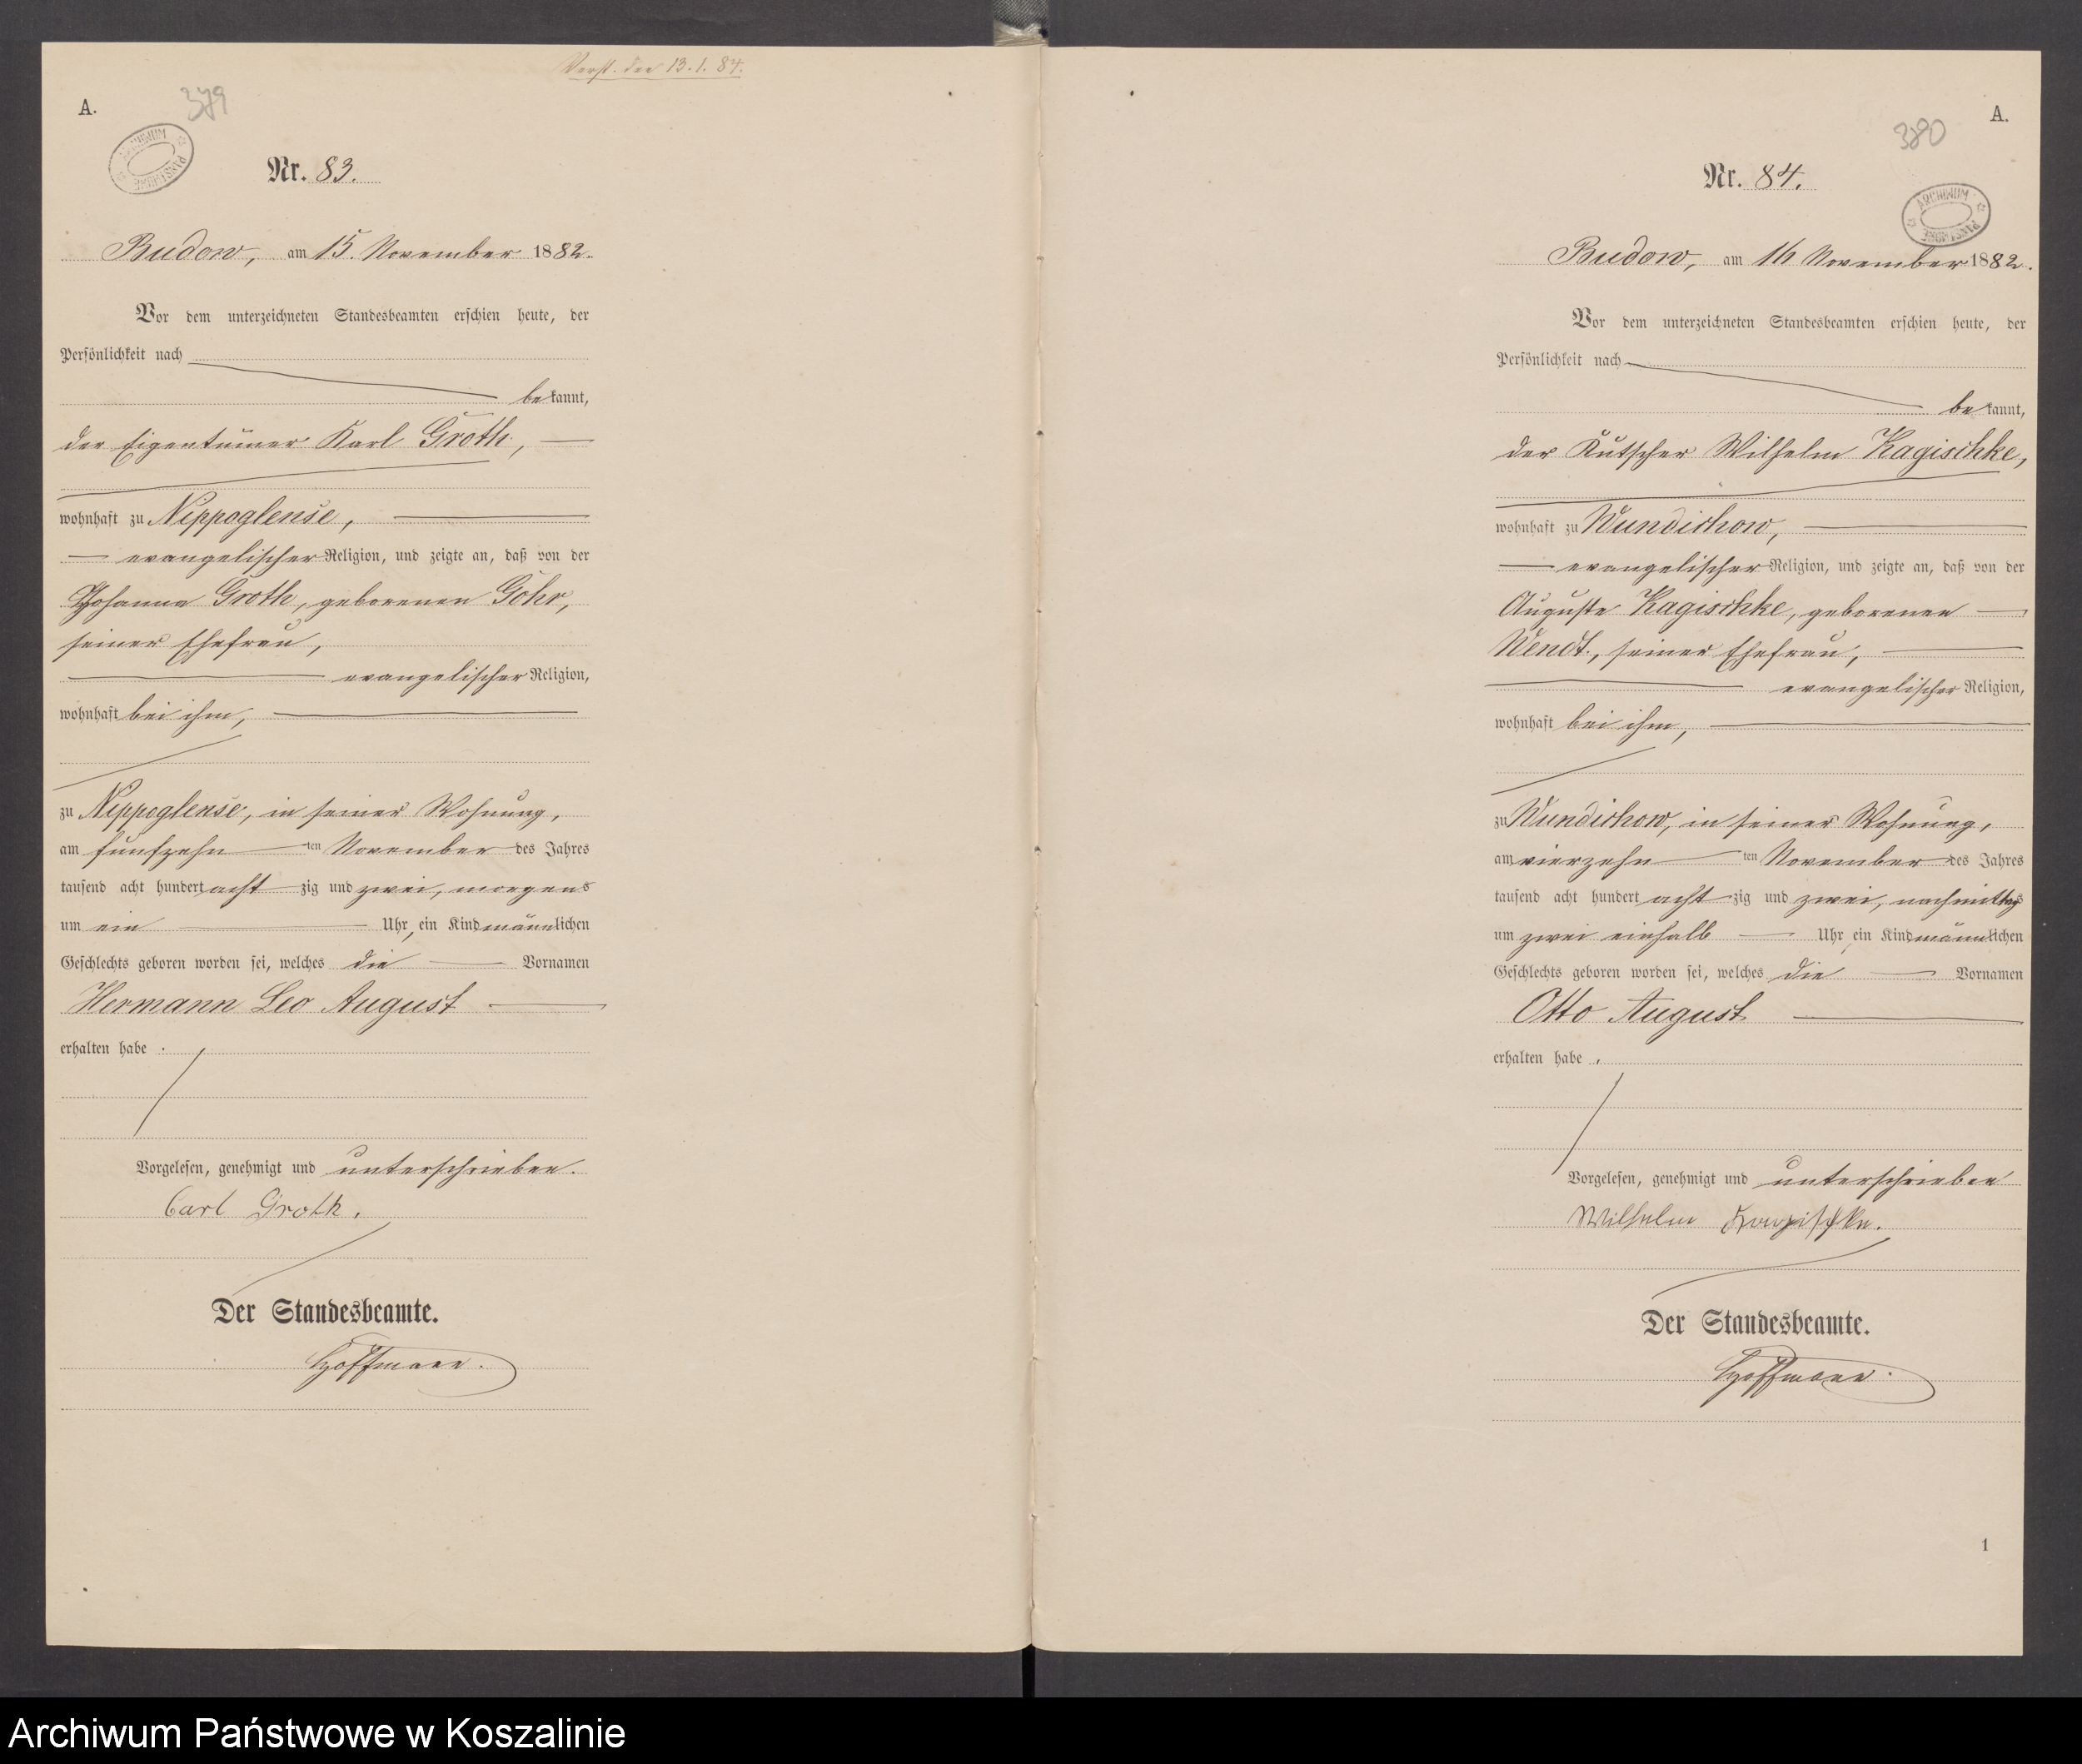 Verst. den 13.1.84.
A.
379
ARCHIWUM PAŃSTWOWE
Nr. 83.
Budow, am 15. November 1882.
Vor dem unterzeichneten Standesbeamten erschien heute, der
Persönlichkeit nach
bekannt,
der Eigentümer Karl Groth,
wohnhaft zu Nippoglense,
evangelischer Religion, und zeigte an, daß von der
Johanna Groth, geborenen Gohr,
seiner Ehefrau,
evangelischer Religion,
wohnhaft bei ihm,
zu Nippoglense, in seiner Wohnung,
am fünfzehn ten November des Jahres
tausend acht hundert acht zig und zwei, morgens
um ein Uhr, ein Kind männlichen
Geschlechts geboren worden sei, welches die Vornamen
Hermann Leo August
erhalten habe.
Vorgelesen, genehmigt und unterschrieben.
Carl Groth.
Der Standesbeamte.
Hoffmann.
A.
380
Nr. 84.
ARCHIWUM PAŃSTWOWE
Budow, am 16 November 1882.
Vor dem unterzeichneten Standesbeamten erschien heute, der
Persönlichkeit nach
bekannt,
der Kutscher Wilhelm Kagischke,
wohnhaft zu Wundichow,
evangelischer Religion, und zeigte an, daß von der
Auguste Kagischke, geborenen
Wendt, seiner Ehefrau,
evangelischer Religion,
wohnhaft bei ihm,
zu Wundichow, in seiner Wohnung,
am vierzehn ten November des Jahres
tausend acht hundert acht zig und zwei, nachmittags
um zwei einhalb Uhr, ein Kind männlichen
Geschlechts geboren worden sei, welches die Vornamen
Otto August
erhalten habe.
Vorgelesen, genehmigt und unterschrieben
Wilhelm Kagischke.
Der Standesbeamte.
Hoffmann.
1
Archiwum Państwowe w Koszalinie